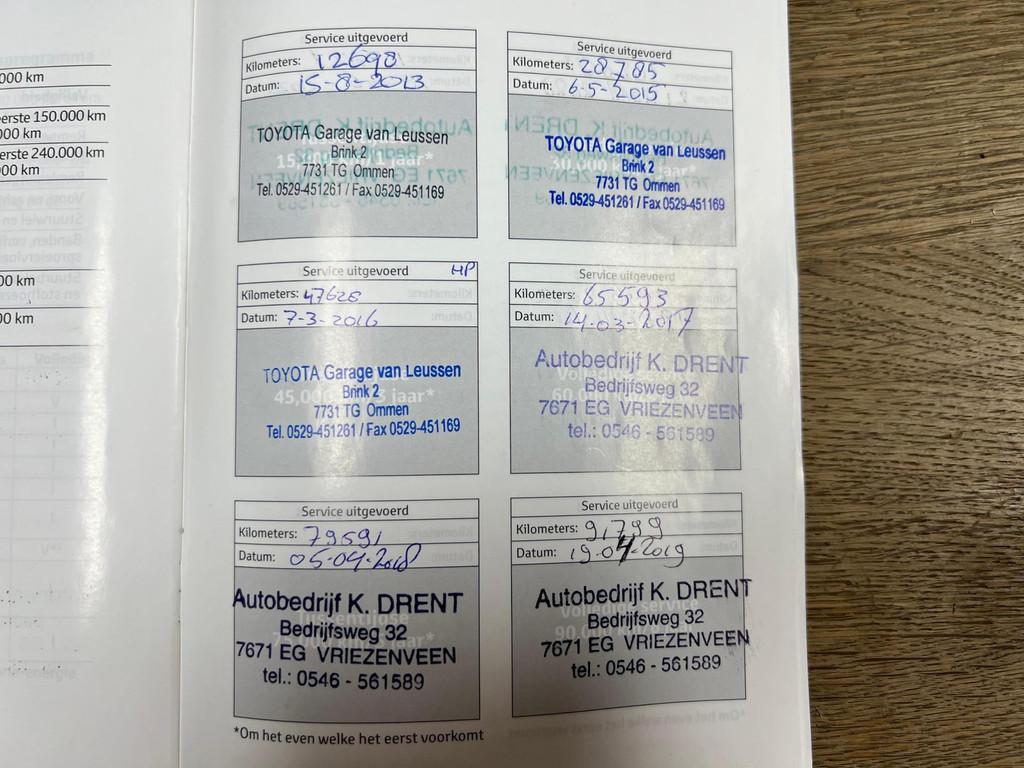 000 km
eerste 150.000 km
000 km
eerste 240.000 km
000 km
00 km
00 km
Service uitgevoerd
Kilometers: 12698
Datum: 15-8-2013
TOYOTA Garage van Leussen
Brink 2
7731 TG Ommen
Tel. 0529-451261 / Fax 0529-451169
Service uitgevoerd
Kilometers: 28785
Datum: 6-5-2015
TOYOTA Garage van Leussen
Brink 2
7731 TG Ommen
Tel. 0529-451261 / Fax 0529-451169
Service uitgevoerd HP
Kilometers: 47628
Datum: 7-3-2016
TOYOTA Garage van Leussen
Brink 2
45,000 3 jaar*
7731 TG Ommen
Tel. 0529-451261 / Fax 0529-451169
Service uitgevoerd
Kilometers: 65593
Datum: 14-03-2017
Autobedrijf K. DRENT
Bedrijfsweg 32
7671 EG VRIEZENVEEN
tel.: 0546 - 561589
Service uitgevoerd
Kilometers: 79591
Datum: 05-04-2018
Autobedrijf K. DRENT
Bedrijfsweg 32
7671 EG VRIEZENVEEN
tel.: 0546 - 561589
Service uitgevoerd
Kilometers: 91,799
Datum: 19-04-2019
Autobedrijf K. DRENT
Volledige service
Bedrijfsweg 32
90.000
7671 EG VRIEZENVEEN
tel.: 0546 - 561589
*Om het even welke het eerst voorkomt